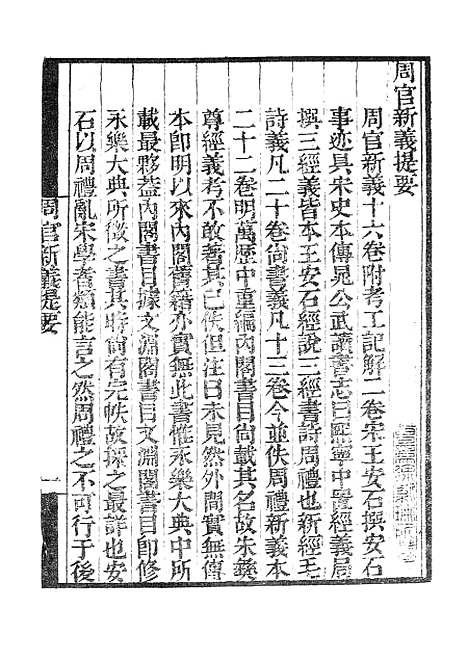 周官新義提要
周官新義十六卷附考工記解二卷宋王安石撰安石
事迹具宋史本傳晁公武讀書志曰熙寧中置經義局
撰三經義皆本王安石經說三經書詩周禮也新經毛
詩義凡二十卷尚書義凡十三卷今並佚周禮新義本
二十二卷明萬歷中重編內閣書目尚載其名故朱彝
尊經義考不敢著其已佚但注曰未見然外間實無傳
本即明以來內閣舊籍亦實無此書惟永樂大典中所
載最夥葢內閣書目據文淵閣書目文淵閣書目即修
永樂大典所徵之書其時尚有完帙故採之最詳也安
石以周禮亂宋學者類能言之然周禮之不可行于後
周官新義提要
一